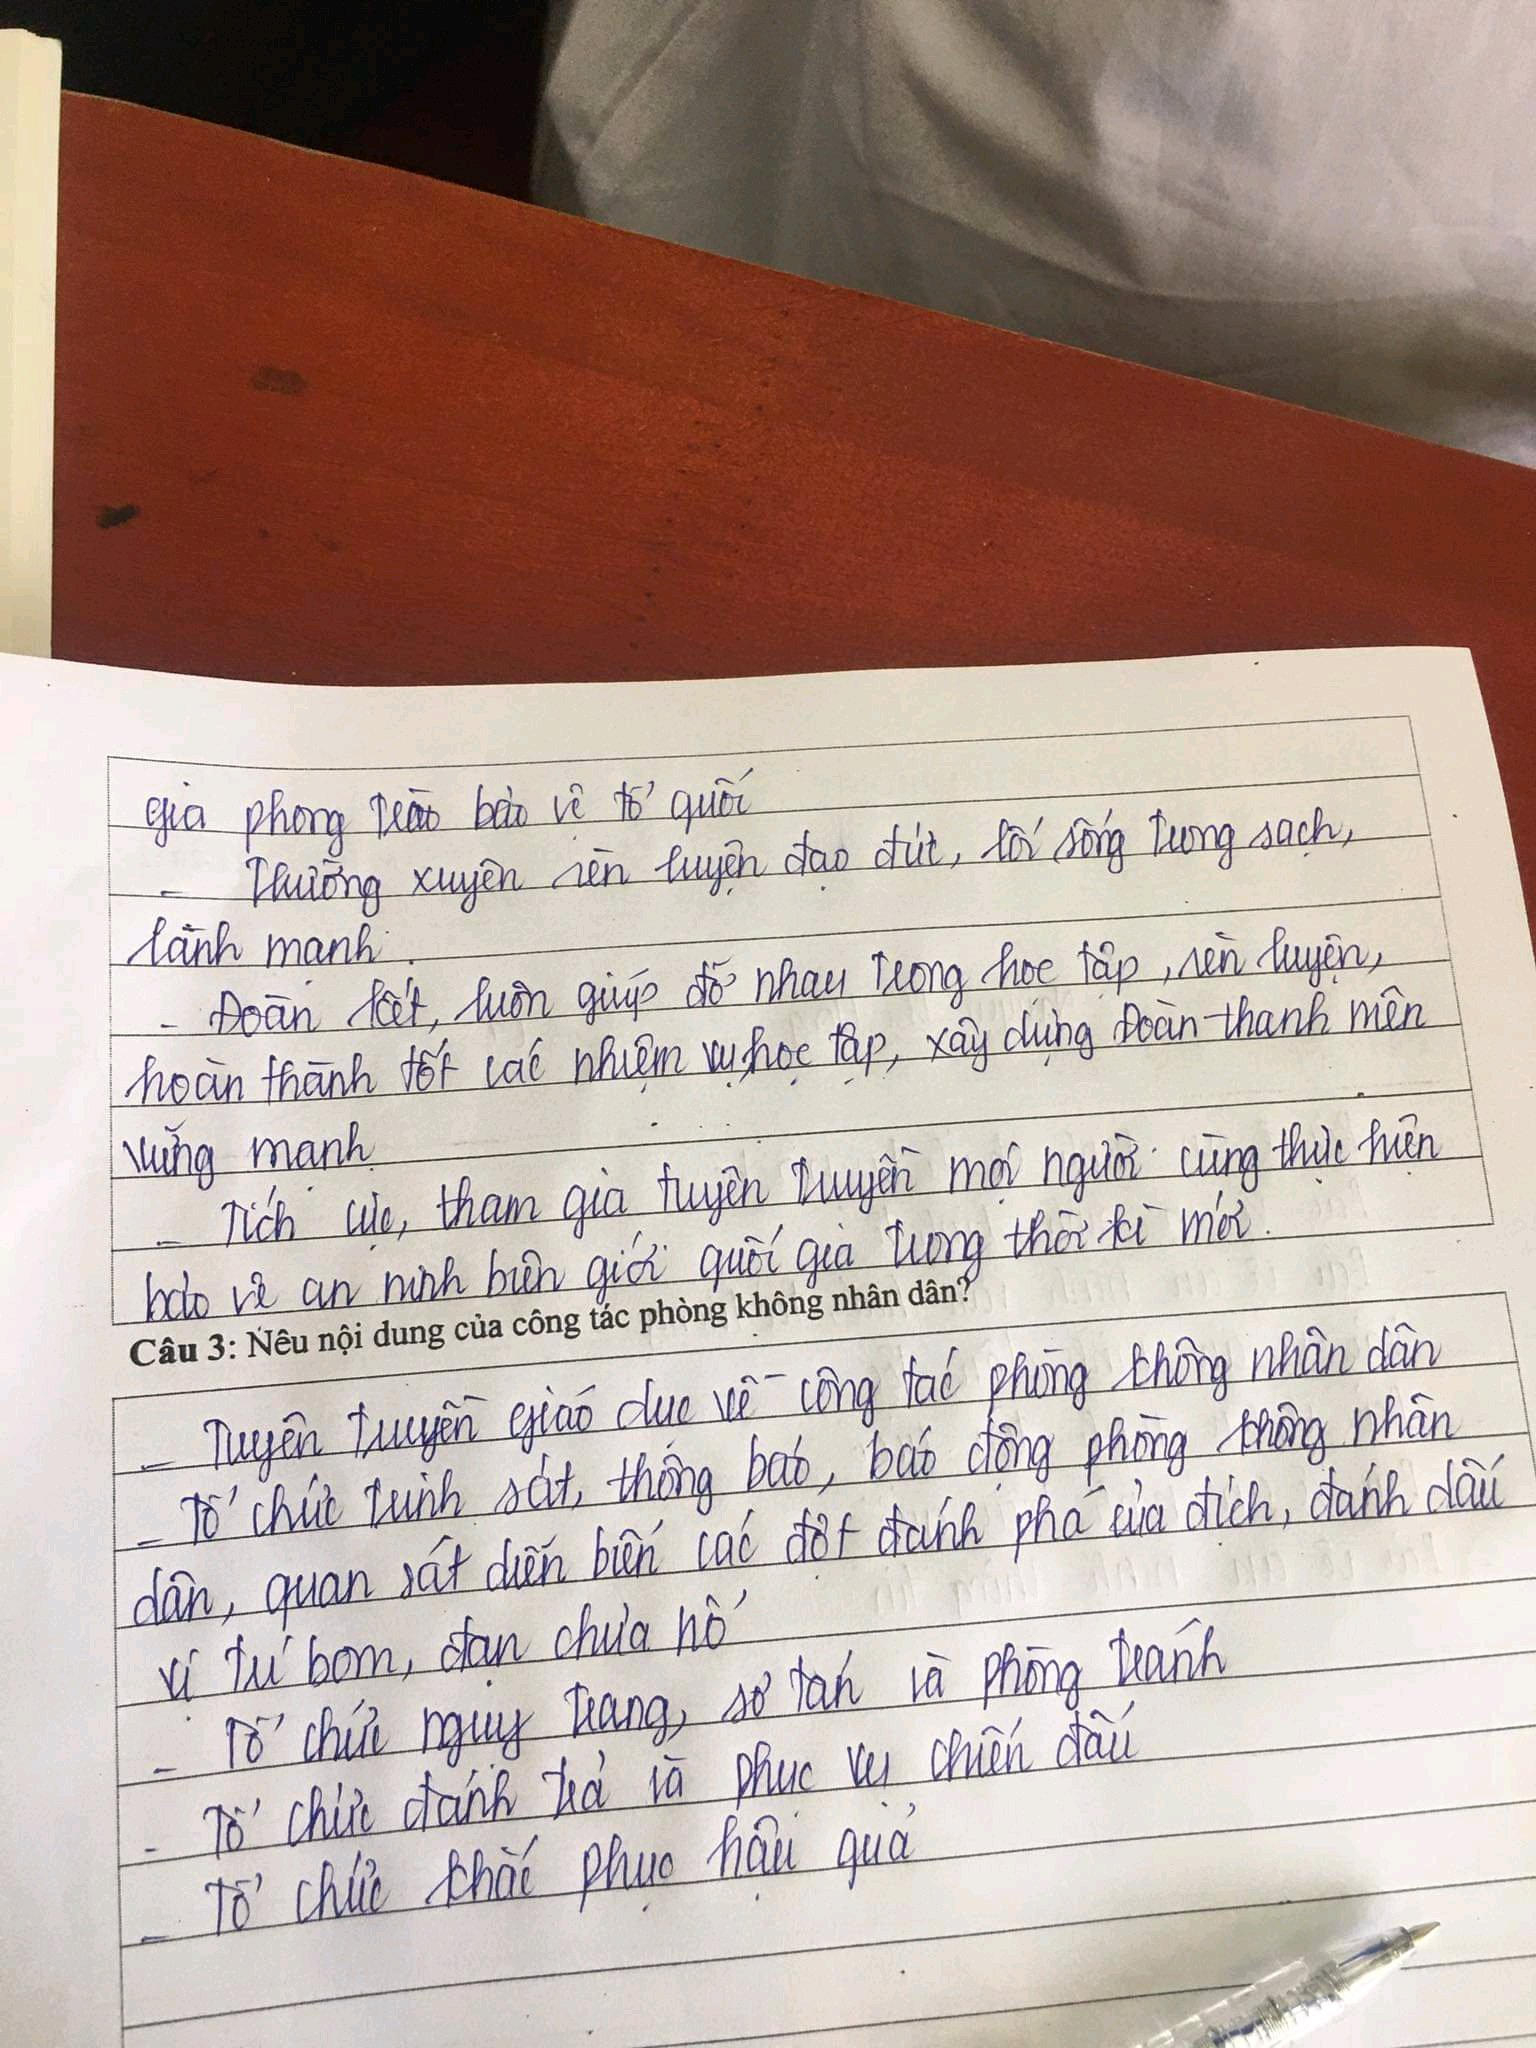 gia phong trào bảo vệ tổ quốc
- Thường xuyên rèn luyện đạo đức, lối sống trong sạch,
lành mạnh.
- Đoàn kết, luôn giúp đỡ nhau trong học tập, rèn luyện,
hoàn thành tốt các nhiệm vụ học tập, xây dựng Đoàn thanh niên
vững mạnh
- Tích cực, tham gia tuyên truyền mọi người cùng thực hiện
bảo vệ an ninh biên giới quốc gia trong thời kì mới.
Câu 3: Nêu nội dung của công tác phòng không nhân dân?
- Tuyên truyền giáo dục về công tác phòng không nhân dân
- Tổ chức trinh sát, thông báo, báo động phòng không nhân
dân, quan sát diễn biến các đợt đánh phá của địch, đánh dấu
vị trí bom, đạn chưa nổ
- Tổ chức ngụy trang, sơ tán và phòng tránh
- Tổ chức đánh trả và phục vụ chiến đấu
- Tổ chức khắc phục hậu quả